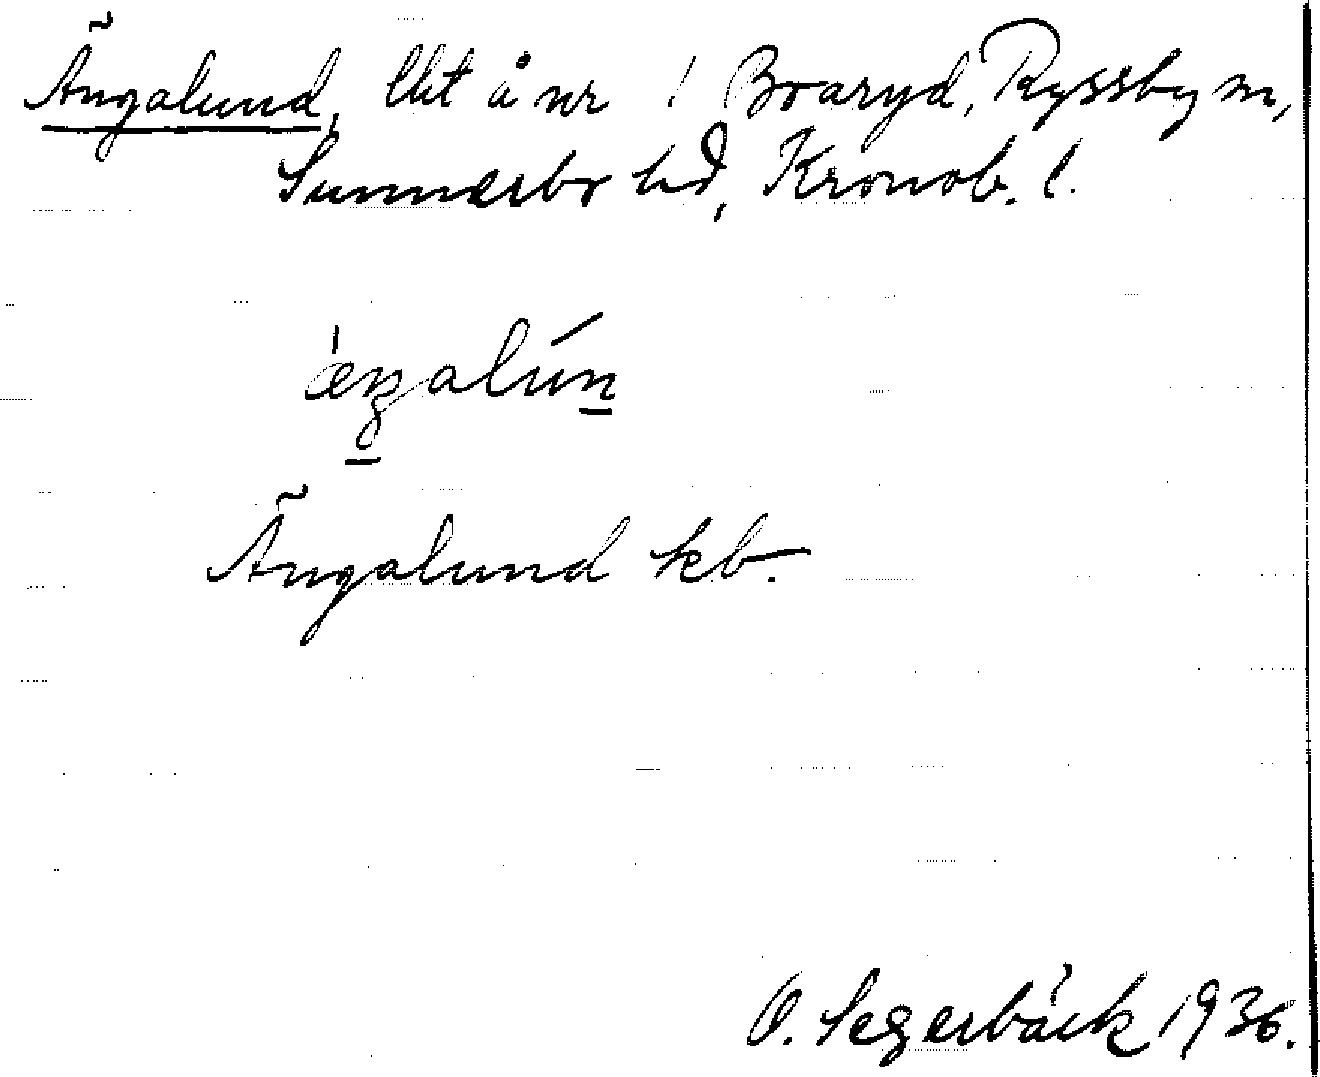 Ängalund, lht å nr 1 Boaryd, Ryssby sn,
Sunnerbo hd, Kronob. l.
ængalún
Ängalund kb.
O. Segerbäck 1936.